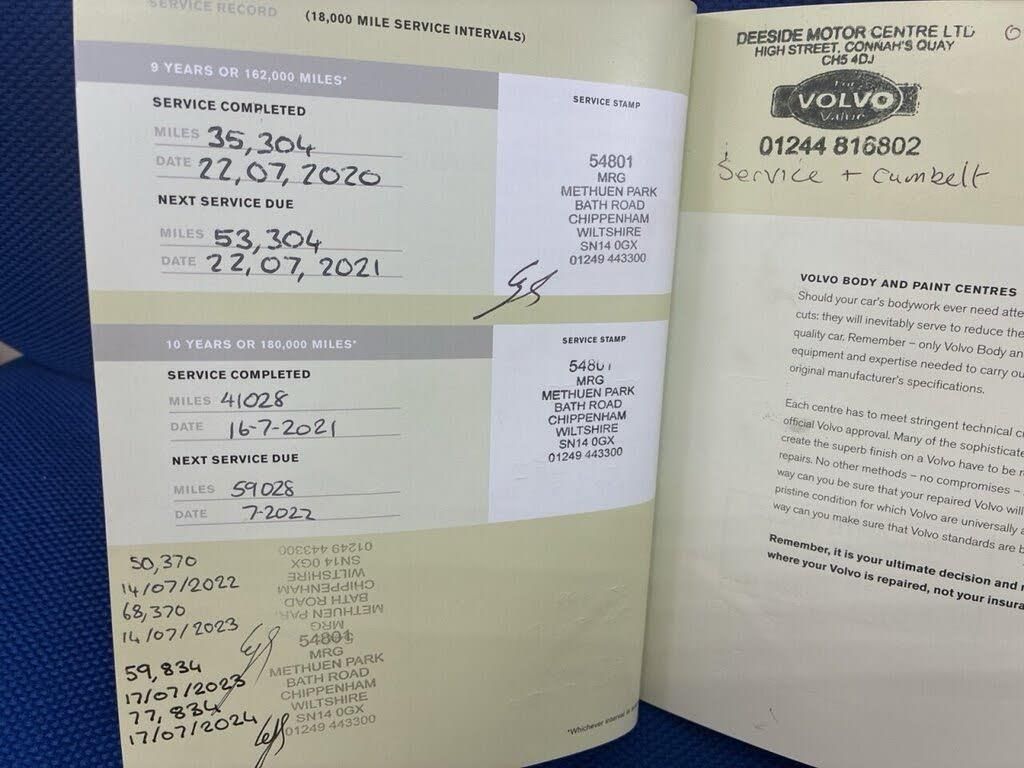 SERVICE RECORD (18,000 MILE SERVICE INTERVALS)
9 YEARS OR 162,000 MILES*
SERVICE COMPLETED
MILES 35,304
DATE 22,07,2020
NEXT SERVICE DUE
MILES 53,304
DATE 22,07,2021
SERVICE STAMP
54801
MRG
METHUEN PARK
BATH ROAD
CHIPPENHAM
WILTSHIRE
SN14 0GX
01249 443300
10 YEARS OR 180,000 MILES*
SERVICE COMPLETED
MILES 41028
DATE 16-7-2021
NEXT SERVICE DUE
MILES 59028
DATE 7-2022
SERVICE STAMP
54801
MRG
METHUEN PARK
BATH ROAD
CHIPPENHAM
WILTSHIRE
SN14 0GX
01249 443300
50,370
14/07/2022
68,370
14/07/2023
54801
MRG
METHUEN PAR
BATH ROAD
CHIPPENHAM
WILTSHIRE
SN14 0GX
01249 443300
59,834
17/07/2023
77,834
17/07/2024
54801
MRG
METHUEN PARK
BATH ROAD
CHIPPENHAM
WILTSHIRE
SN14 0GX
01249 443300
*Whichever interval is
DEESIDE MOTOR CENTRE LTD
HIGH STREET, CONNAH'S QUAY
CH5 4DJ
For
VOLVO
Value
01244 816802
Service + Cambelt
VOLVO BODY AND PAINT CENTRES
Should your car's bodywork ever need atte
cuts: they will inevitably serve to reduce the
quality car. Remember – only Volvo Body an
equipment and expertise needed to carry ou
original manufacturer's specifications.
Each centre has to meet stringent technical c
official Volvo approval. Many of the sophisticate
create the superb finish on a Volvo have to be
repairs. No other methods – no compromises –
way can you be sure that your repaired Volvo will
pristine condition for which Volvo are universally
way can you make sure that Volvo standards are b
Remember, it is your ultimate decision and
where your Volvo is repaired, not your insura